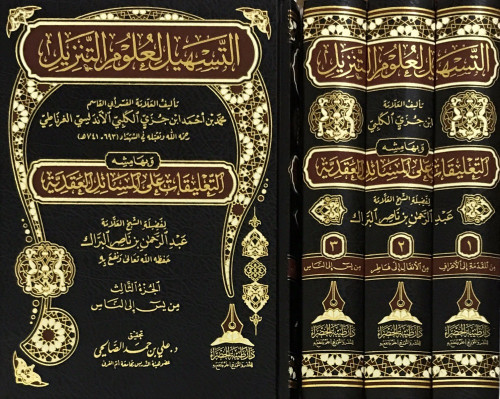 التسهيل لعلوم التنزيل
تأليف العلامة المفسر أبي القاسم
محمد بن أحمد ابن جزي الكلبي الأندلسي الغرناطي
رحمه الله وتقبله في الشهداء (٦٩٣-٧٤١هـ)
وبهامشه
التعليقات على المسائل العقدية
لفضيلة الشيخ العلامة
عبد الرحمن بن ناصر البراك
حفظه الله تعالى ونفع به
الجزء الثالث
من يس إلى الناس
تحقيق
د. علي بن حمد الصالحي
دار طيبة الخضراء
التسهيل لعلوم التنزيل
تأليف العلامة المفسر
ابن جزي الكلبي
وبهامشه
التعليقات على المسائل العقدية
لفضيلة الشيخ العلامة
عبد الرحمن بن ناصر البراك
١
من المقدمة إلى الأعراف
٢
من الأنفال إلى فاطر
٣
من يس إلى الناس
دار طيبة الخضراء
دار طيبة الخضراء
دار طيبة الخضراء